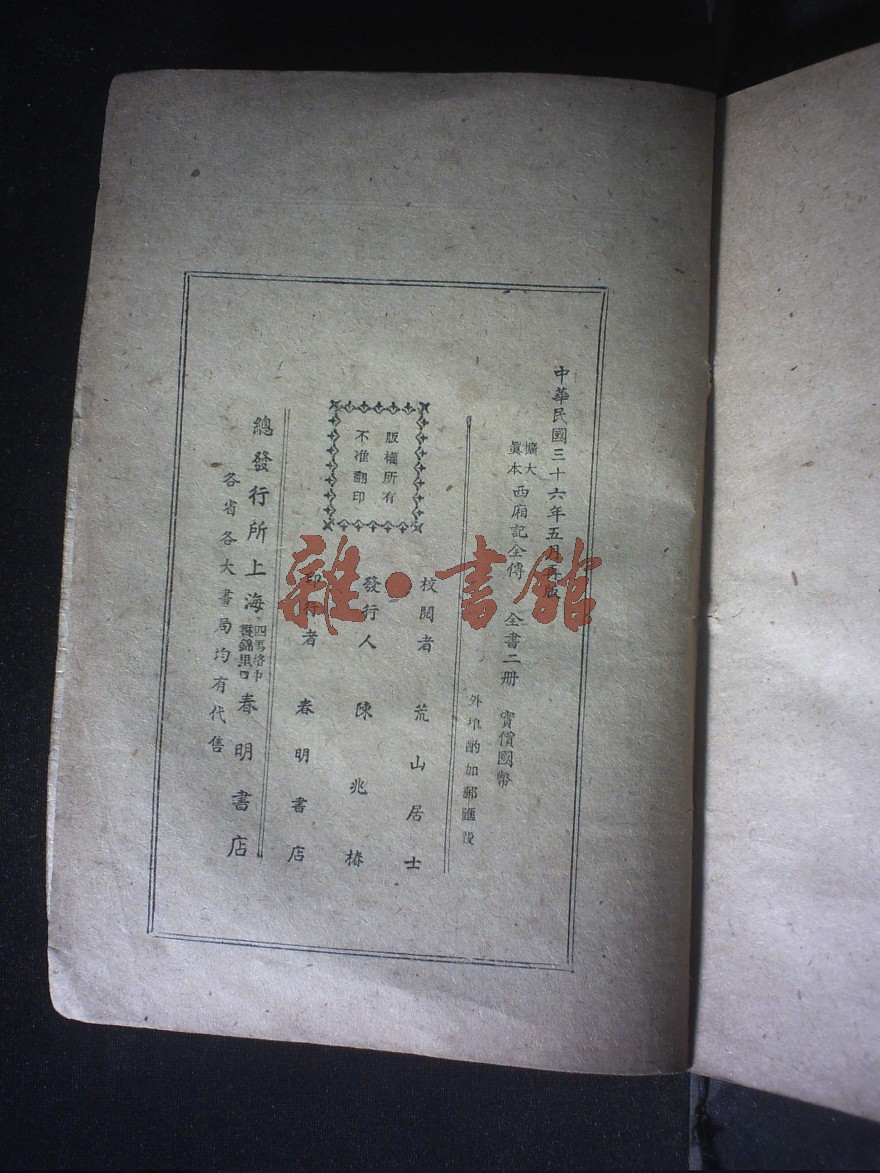 中華民國三十六年五月再版
擴大
眞本
西廂記全傳 全書二册 實價國幣
外埠酌加郵匯費
版權所有
不准翻印
校閱者 荒山居士
發行人 陳兆椿
印行者 春明書店
總發行所上海
四馬路中
春明書店
各省各大書局均有代售
雜·書館